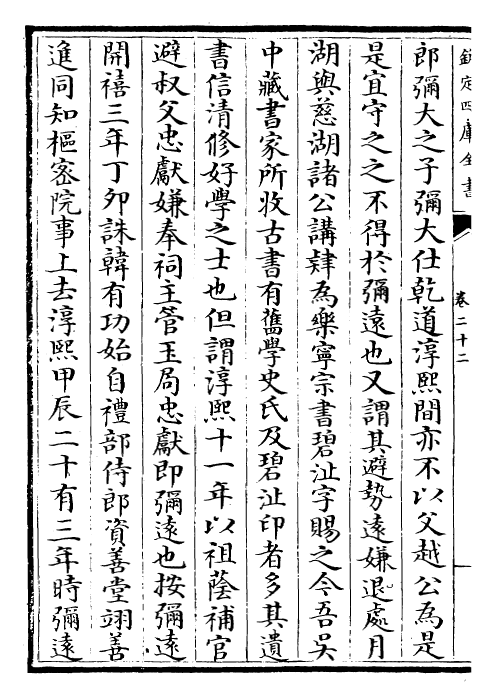 欽定四庫全書
卷二十二
郎彌大之子彌大仕乾道淳熙間亦不以父越公為是
是宜守之之不得於彌遠也又謂其避勢遠嫌退處月
湖與慈湖諸公講肄為樂寧宗書碧沚字賜之今吾吳
中藏書家所收古書有舊學史氏及碧沚印者多其遺
書信清修好學之士也但謂淳熙十一年以祖蔭補官
避叔父忠獻嫌奉祠主管玉局忠獻即彌遠也按彌遠
開禧三年丁夘誅韓有功始自禮部侍郎資善堂翊善
進同知樞密院事上去淳熙甲辰二十有三年時彌遠